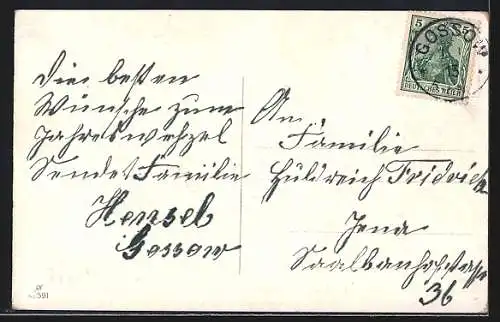 Die besten
Wünsche zum
Jahreswehzel
Sendet Familie
Hensel
Gossow
An
Familie
Hüldreich Fridrich
Jena
Saalbanhofstrasse
36
5
DEUTSCHES REICH
GOSSOW